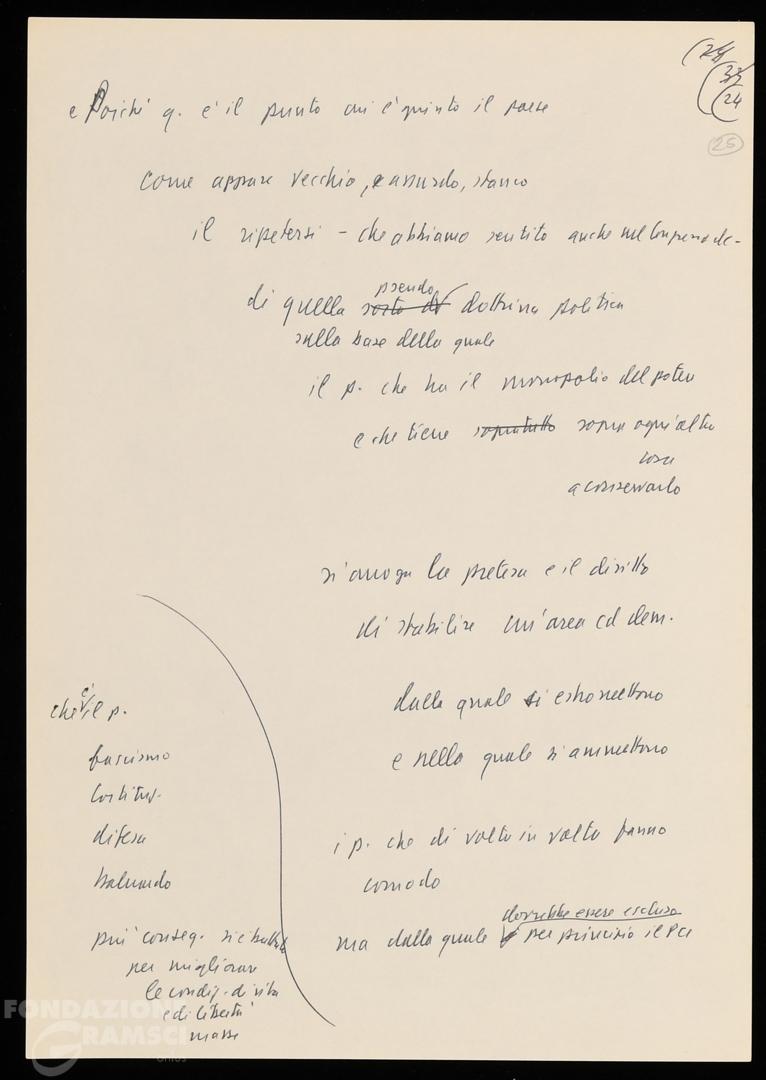 (24
(33
(24
25
e Poichè q. è il punto cui è giunto il paese
come appare vecchio, e assurdo, stanco
il ripetersi – che abbiamo sentito anche nel Congresso dc –
di quella sorta di pseudo dottrina politica
sulla base della quale
il p. che ha il monopolio del potere
e che tiene sopratutto sopra ogni altra
cosa
a conservarlo
si arroga la pretesa e il diritto
di stabilire un'area cd dem.
dalla quale si estromettono
e nella quale si ammettono
i p. che di volta in volta fanno
comodo
ma dalla quale dovrebbe essere escluso per principio il Pci
che è il p.
fascismo
Costituz.
difesa
baluardo
più conseq. si è battuto
per migliorare
le condiz. di vita
e di libertà
masse
FONDAZIONE
GRAMSCI
onlus